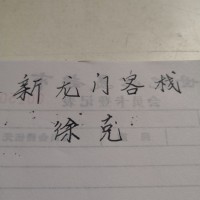 新龙门客栈
徐克